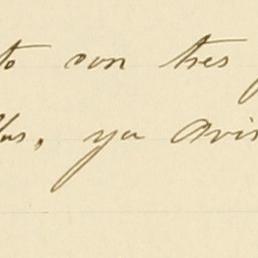 to con tres
ya avis